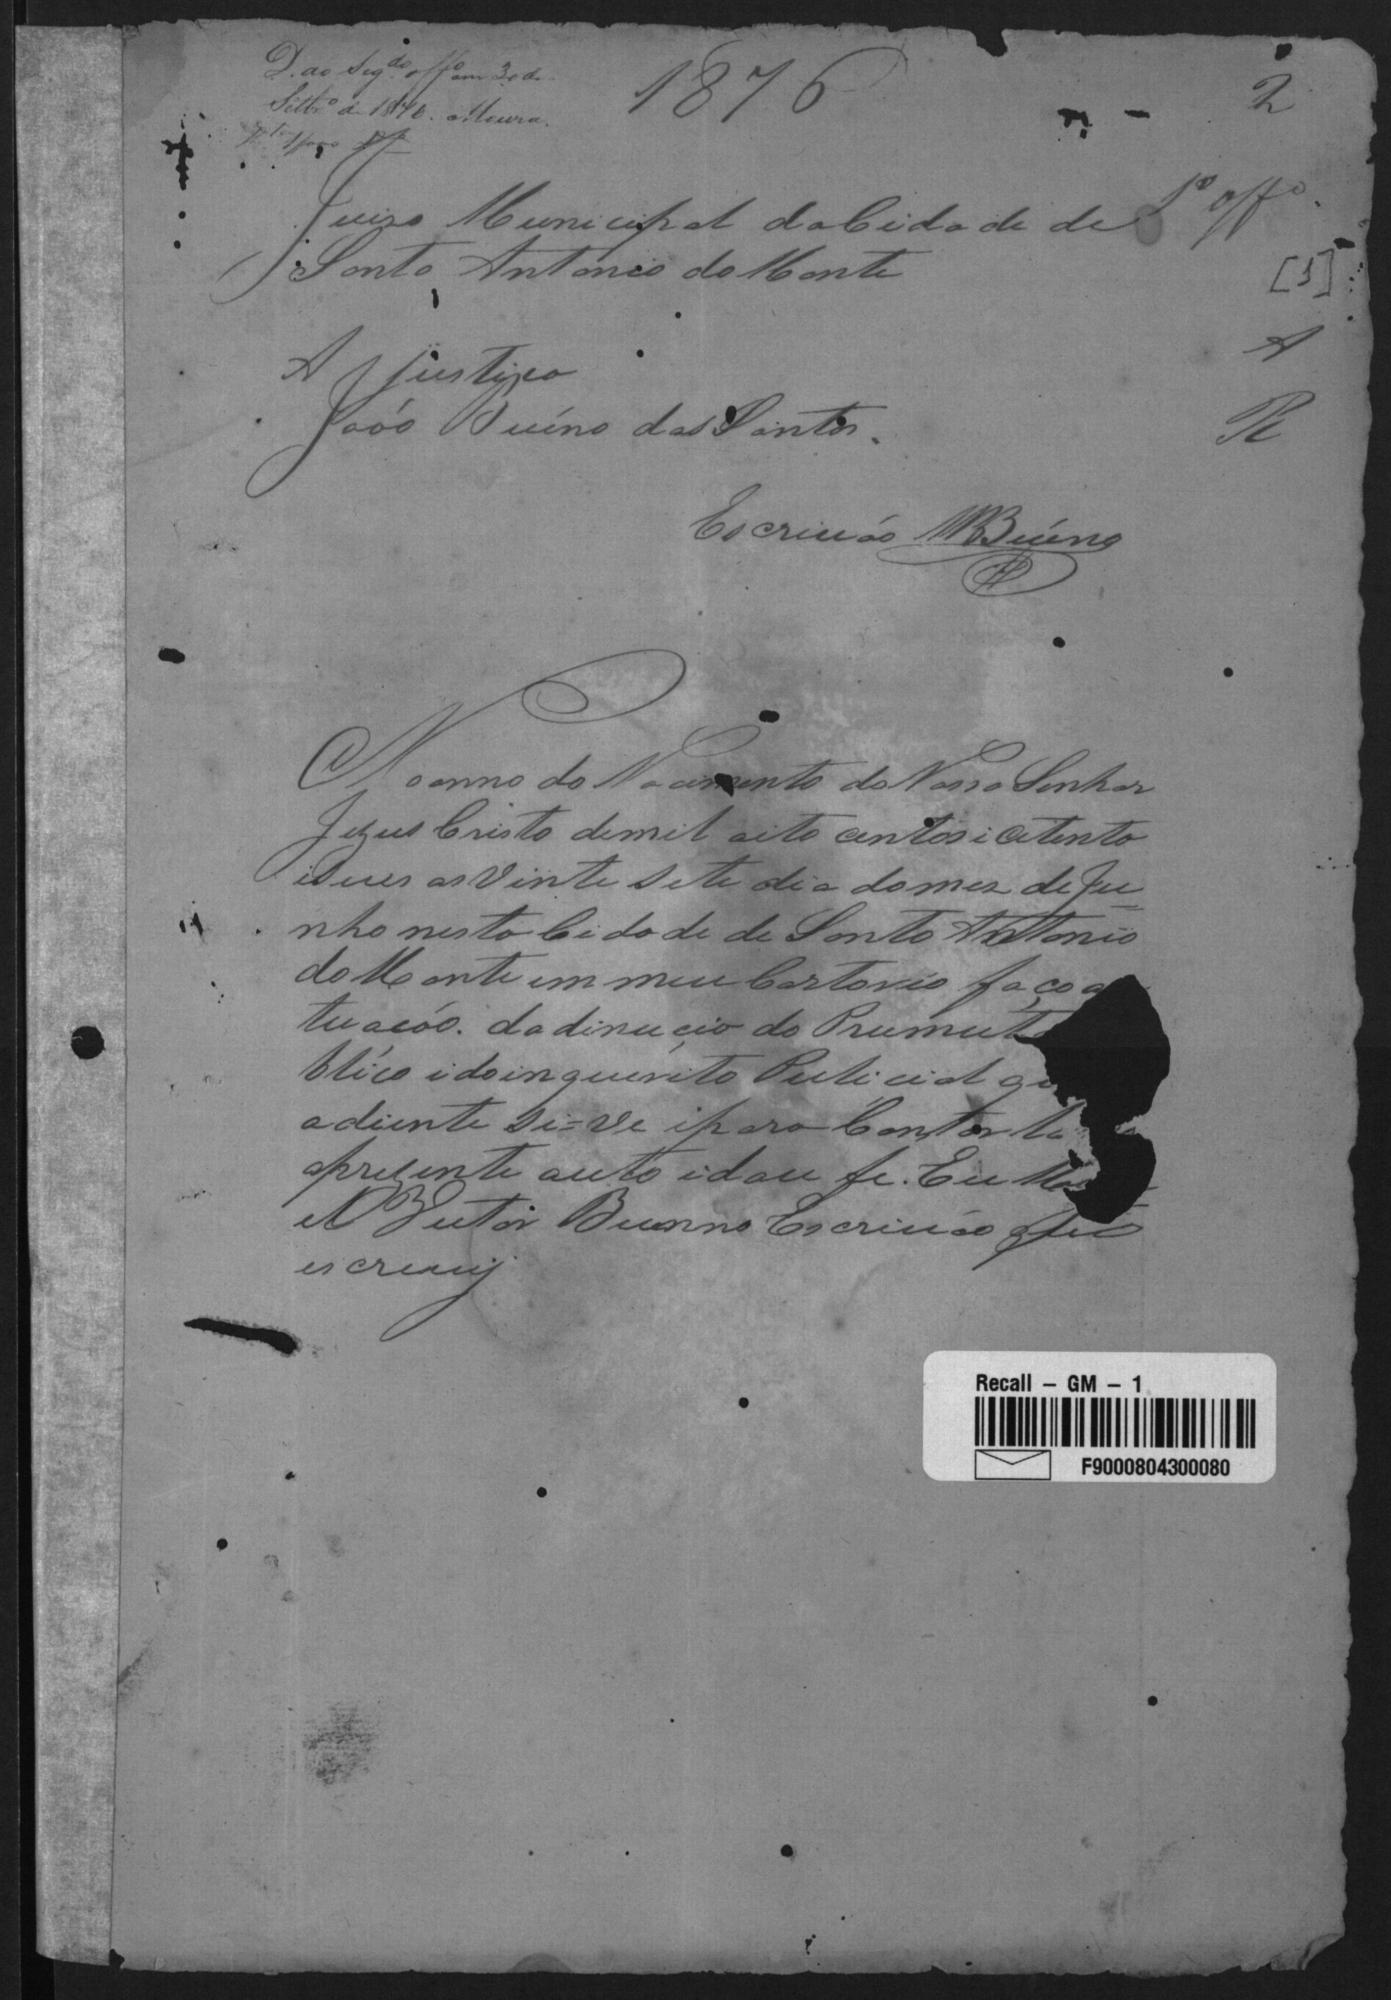 D. ao Seg.do offo em 30 de
Settbro de 1876. Moura.
1876
2
Juizo Municipal da Cidade de
1o offo.
Santo Antonio do Monte
[1]
A Justiça
A
João Buéno dos Santos.
R
Escrivão MVBuéno
No anno do Nacimento do Nosso Senhor
Jezus Cristo de mil oito centos i cetenta
i Sues as Vinte Sete dia do mez de Ju=
nho nesta Cidade de Santo Antonio
do Monte em meu Cartorio faço a
tuacóo. da dinucia do Prumut
blico i do inquerito Pulicial q
adiente si=ve i para Constar la
apresente auto i dou fe. Eu Ma
el Vutor Buenno Escrivão que
escreuij
Recall – GM – 1
F9000804300080